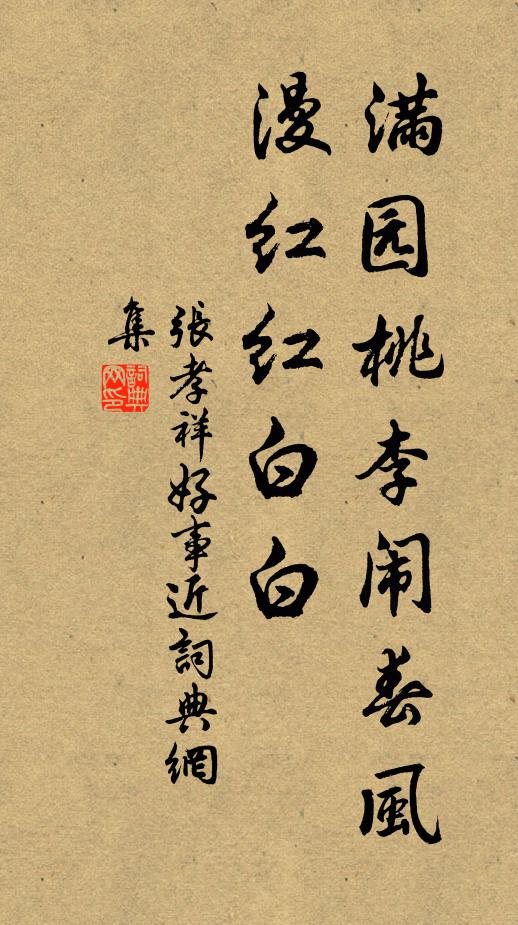 满园桃李闹春風
漫红红白白
張孝祥好事近詞典網
集
詞典
网印